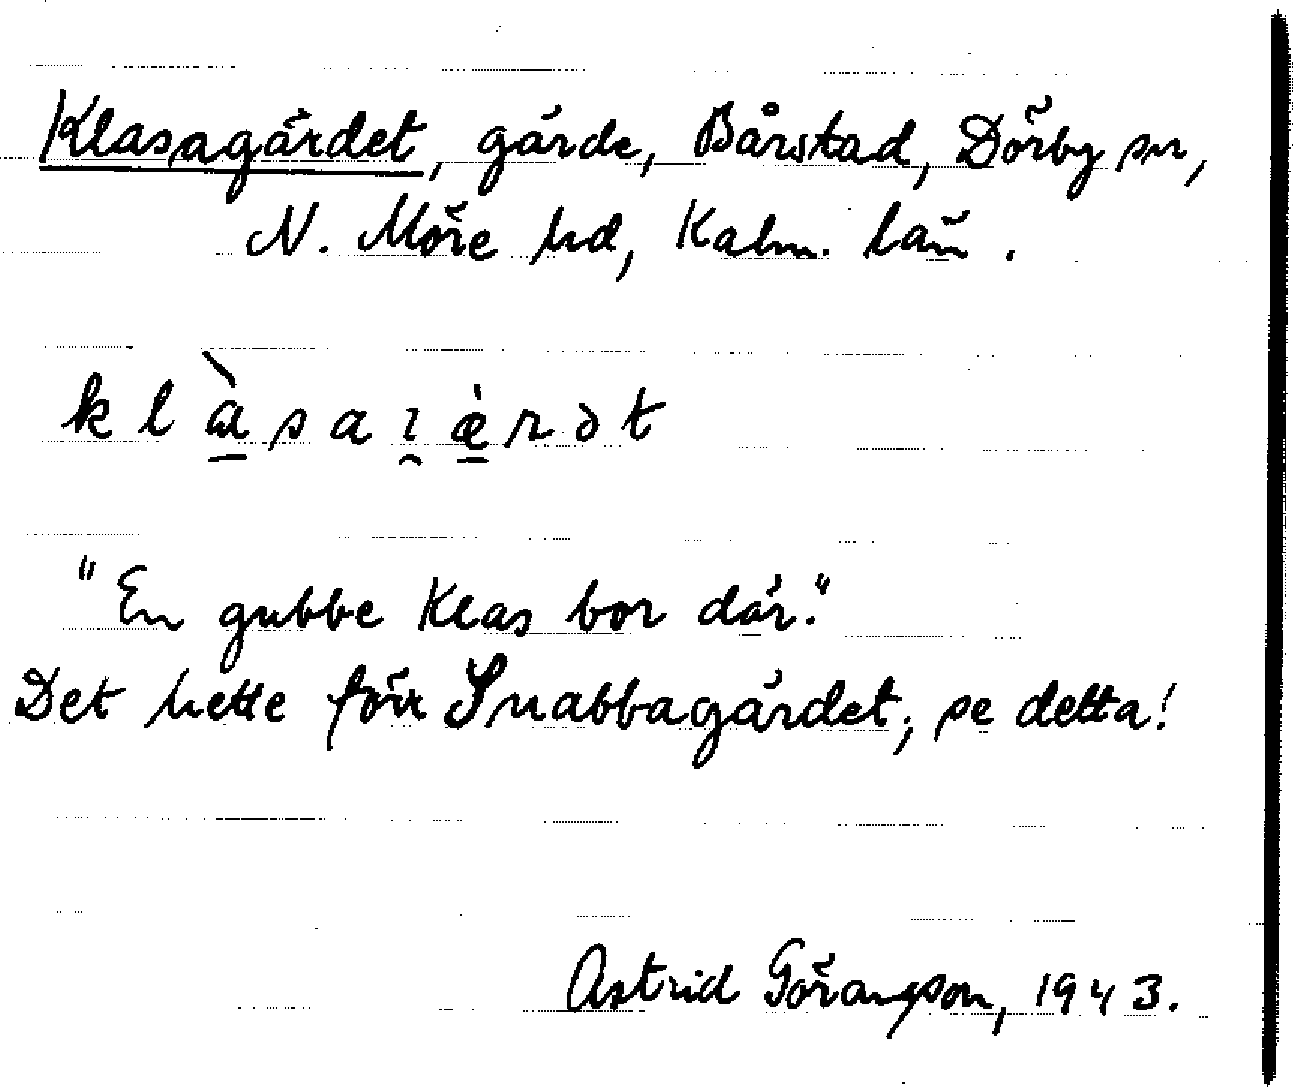 Klasagärdet, gärde, Bårstad, Dörby sn,
N. Möre hd, Kalm. län.
klàsaı̯æ̀rət
"En gubbe Klas bor där."
Det hette förr Snabbagärdet, se detta!
Astrid Göransson, 1943.